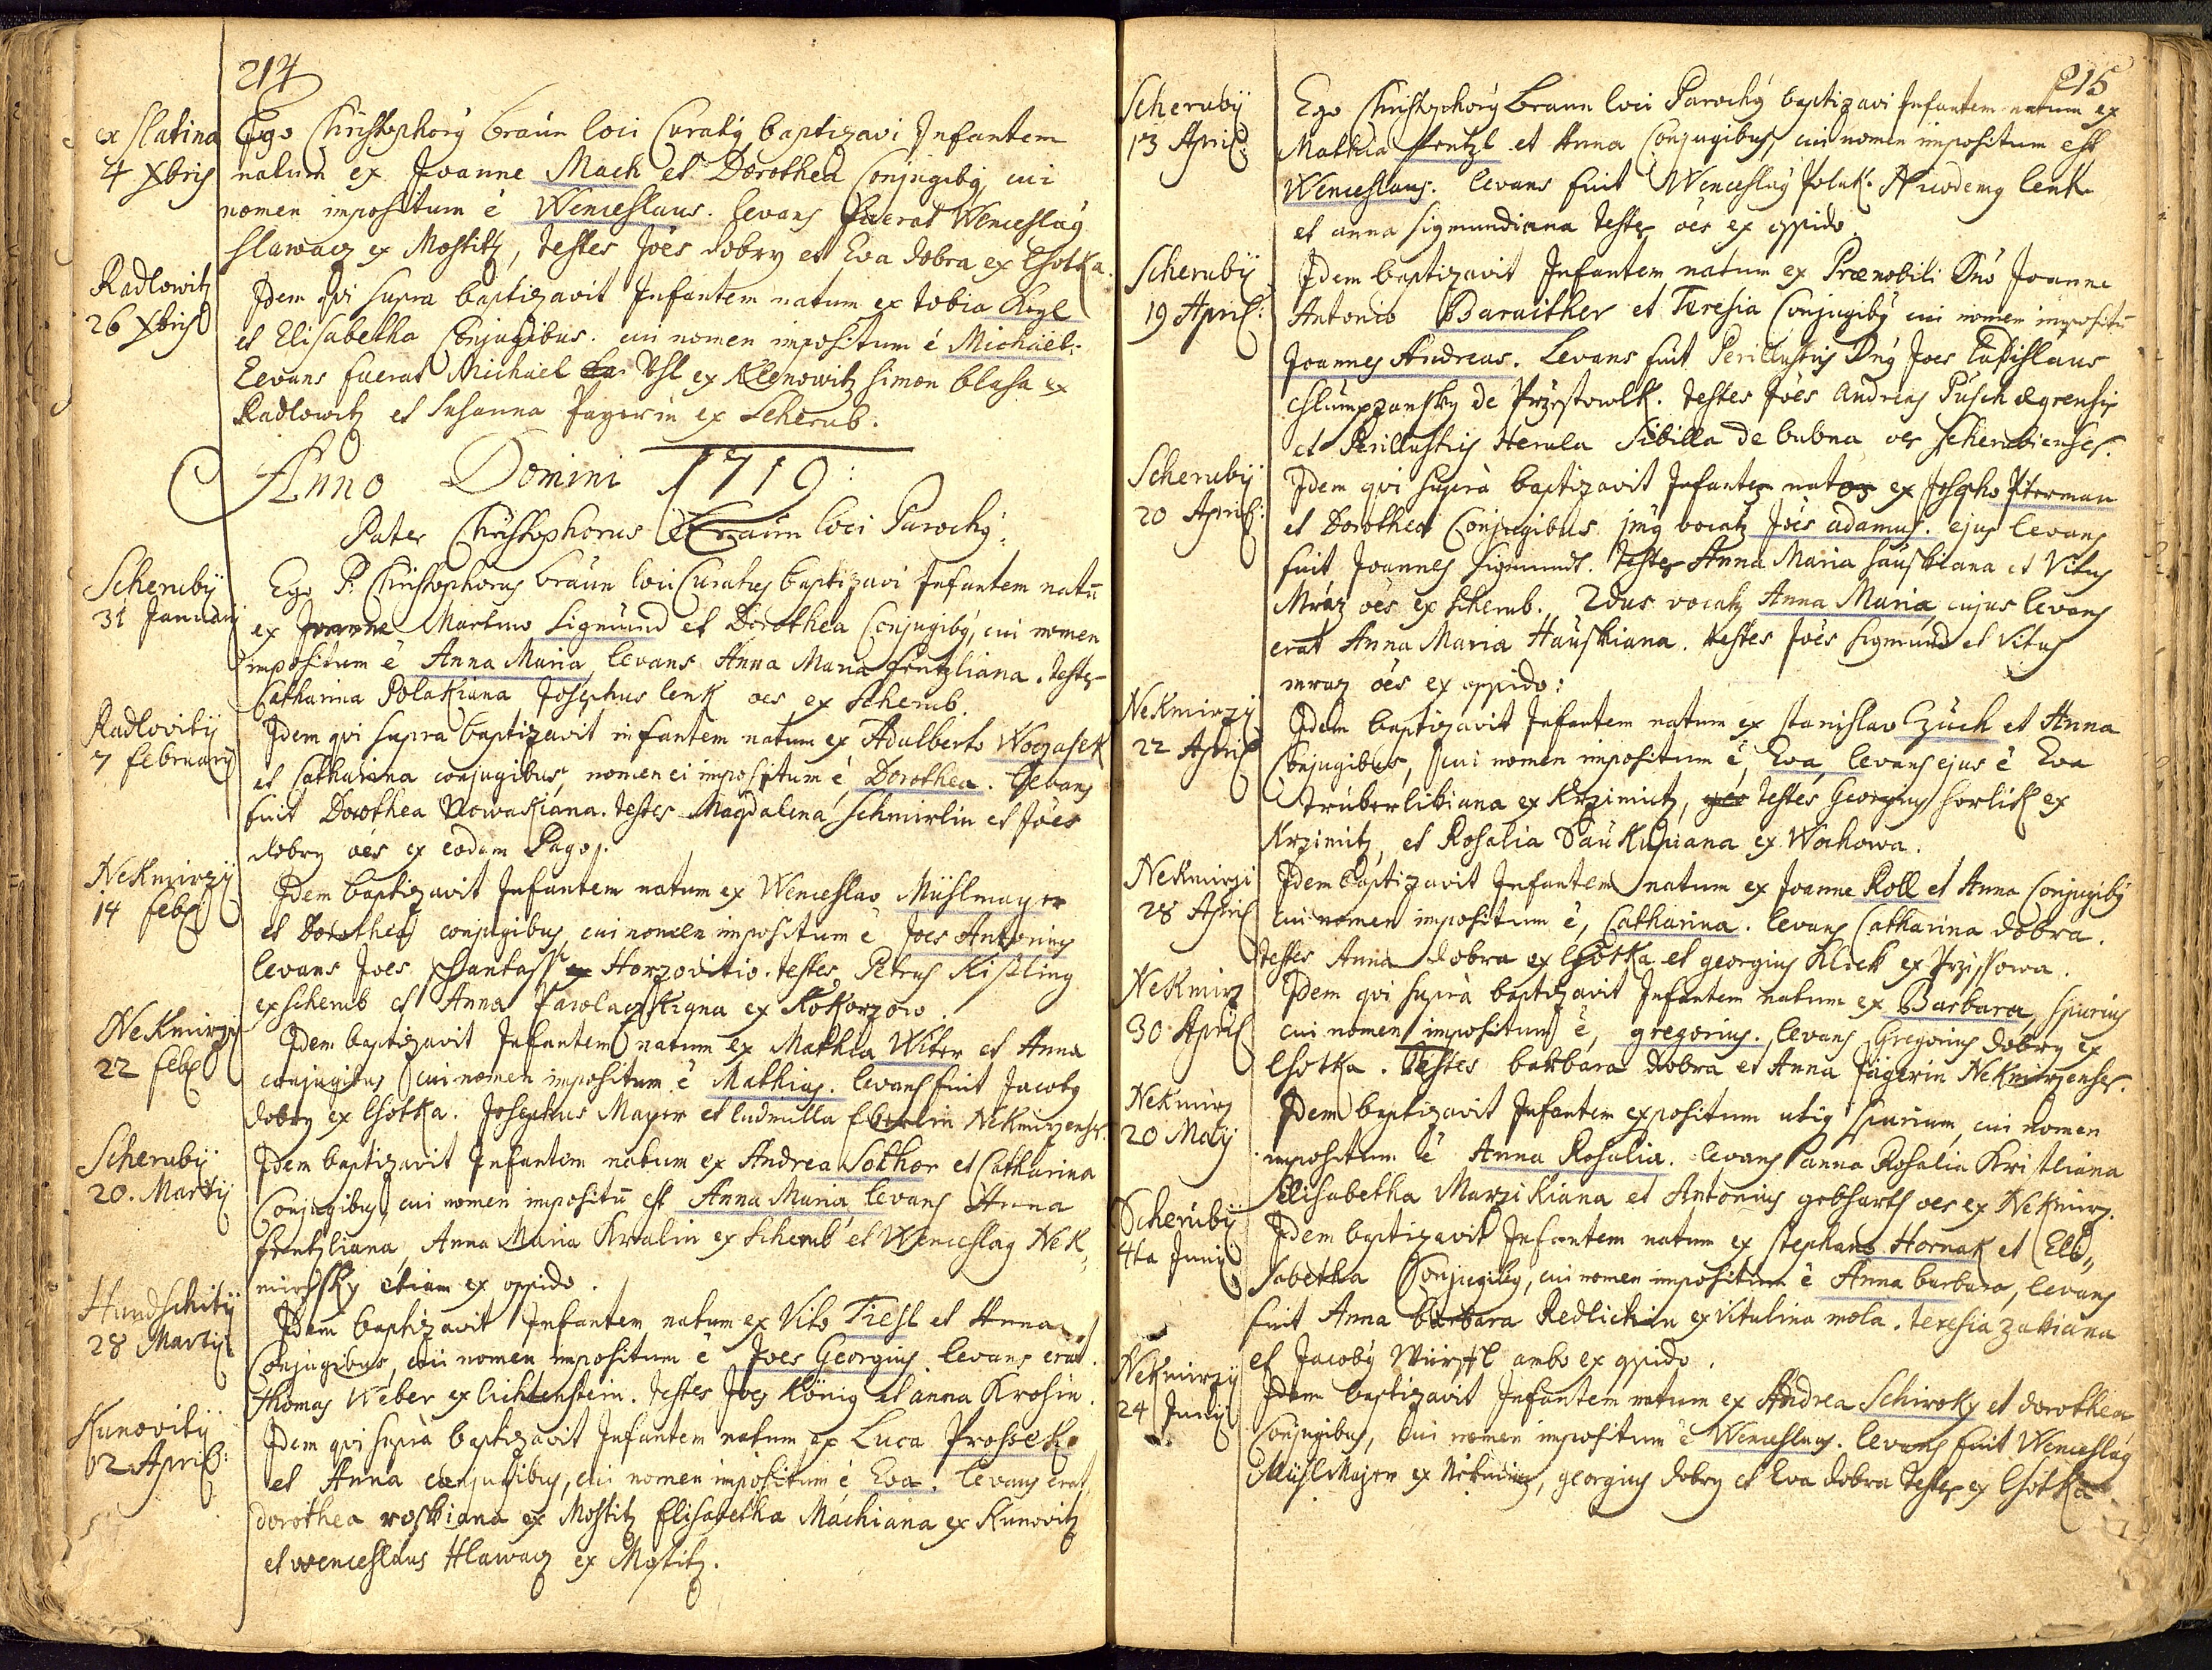 214
ex Slatina
4 Xbris
Ego Christophorq Braun loci Curatq baptizavi Infantem
natum ex Joanne Mach et Dorothea Conjugibq, cui
nomen impositum ē Wenceslaus. levans fuerat Wenceslaq
Hlawacz ex Mostitz, testes Joēs dobry et Eva dobra ex Lhotka.
Radlowitz
26 Xbris
Idem qvi supra baptizavit Infantem natum ex tobia
et Elisabetha Conjugibus. cui nomen impositum ē Michael.
Levans fuerat Michael ex simon blaha ex
Radlowitz et Susanna ex Scherub.
Anno Domini 1719:
Pater Christophorus Braun loci Parochq.
Scherubÿ
31 Januarÿ
Ego P. Christophorus braun loci Curatus baptizavi Infantem natū
ex Martino Sigmund et Dorothea Conjugibq, cui nomen
impositum ē Anna Maria, levans Anna Maria frentzliana. testes
Catharina Polakiana, Josephus lenk oēs ex Scherub.
Radlovitÿ
7 februarÿ
Idem qvi supra baptizavit infantem natum ex Adalberto Woczasek
et Catharina conjugibus, nomen ei impositum ē, Dorothea. levans
fuit Dorothea Nowakiana. testes Magdalena Schmirlin et Joēs
dobry oēs ex eodem Pago.
Nekmirzÿ
14 feb
Idem baptizavit Infantem natum ex Wenceslao Mühlmayer
et Dorothea conjugibus, cui nomen impositum ē Joēs Antonius
levans Joēs ex Horzovitio. testes Petrus Kistling
ex Scherub et Anna ex Kokorzow.
Nekmirzÿ
22 feb
Idem baptizavit Infantem natum ex Mathia Witer et Anna
conjugibus cui nomen impositum ē Mathias. levans fuit Jacobq
dobry ex Lhotka. Josephus Mayer et ludmilla Eberlin Nekmirzenses.
Scherubÿ
20. Martÿ
Idem baptizavit Infantem natum ex Andrea Sothor et Catharina
Conjugibus, cui nomen impositū est Anna Maria, levans Anna
frentzliana, Anna Maria Kralin ex Scherub et Wenceslaq Nek,,
mirsky etiam ex oppido.
Hundschitÿ
28 Martÿ
Idem baptizavit Infantem natum ex Vito Tiesl et Anna
Conjugibus, cui nomen impositum ē Joēs Georgius. levans erat
thomas Weber ex lichtenstein. testes Joēs König et anna Krosin.
Kunovitÿ
02 April:
Idem qvi suprà baptizavit Infantem natum ex Luca Prossek
et Anna conjugibus, cui nomen impositum ē, Eva. levans erat
dorothea roskiana ex Mostitz Elisabetha Machiana ex Kunovitz
et wenceslaus Hlawacz ex Mostitz.
215
Scherubÿ
13 April:
Ego Christophorq Braun loci Parochq baptizavi Infantem natum ex
Mathia frentzl et Anna Conjugibus, cui nomen impositum est
Wenceslaus. levans fuit Wenceslaq Polak. Nicodemq lenk
et anna Sigmundiana testes oēs ex oppido.
Scherubÿ
19 April:
Idem baptizavit Infantem natum ex Prænobili Dno Joanne
Antonio Baraither et Teresia Conjugibq cui nomen impositū
Joannes Andreas. Levans fuit Perillustris Dnq Joes Ladislaus
de testes Joēs Andreas Pusch
et Perillustris Herula Sibilla de bubna oēs Scherubienses.
Scherubÿ
20 April:
Idem qvi suprà baptizavit Infantes natos ex Josepho
et Dorothea Conjugibus. jmq vocatq Joēs adamus. ejus levans
fuit Joannes Sigmundt. testes Anna Maria Hauskiana et Vitus
Mraz oēs ex Scherub. 2dus vocatq Anna Maria, cujus levans
erat Anna Maria Hauskiana. testes Joēs Sigmund et Vitus
mraz oēs ex oppido:
Nekmirzÿ
22 April
Idem baptizavit Infantem natum ex Stanislao Czuch et Anna
Conjugibus, cui nomen impositum ē, Eva, levans ejus ē Eva
truberlikiana ex Krzimitz, testes Georgius horlik ex
Krzimitz, et Rosalia Saukupiana ex Wochowa.
Nekmirzi
28 April
Idem baptizavit Infantem natum ex Joanne Koll et Anna Conjugibq
cui nomen impositum ē, Catharina. levans Catharina dobra.
testes Anna dobra ex Lhotka et georgius Klick ex Przissowa.
Nekmirz
30 April
Idem qvi suprà baptizavit Infantem natum ex Barbara, spurius
cui nomen impositum ē, gregorius. levans Gregorius dobry ex
Lhotka. testes barbara dobra et Anna Jägerin Nekmirzenses.
Nekmirz
20 Maÿ
Idem baptizavit Infantem expositum utiq spurium, cui nomen
impositum ē Anna Rosalia. levans anna Rosalia Kristliana
Elisabetha Marzikiana et Antonius gebhartt oes ex Nekmirz.
Scherubÿ
4ta Junÿ
Idem baptizavit Infantem natum ex stephano Hornak et Elÿ,,
sabetha Conjugibq, cui nomen impositum ē Anna barbara, levans
fuit Anna barbara Redlickin ex Vitulina mola. teresia zakiana
et Jacobq Würstl ambo ex oppido.
Nekmirzÿ
24 Junÿ
Idem baptizavit Infantem natum ex Andrea Schiroky et dorothea
Conjugibus, cui nomen impositum ē Wenceslaus. levans fuit Wenceslaq
MühlMajer ex Nekmirz, georgius dobry et Eva dobra testes ex Lhotka